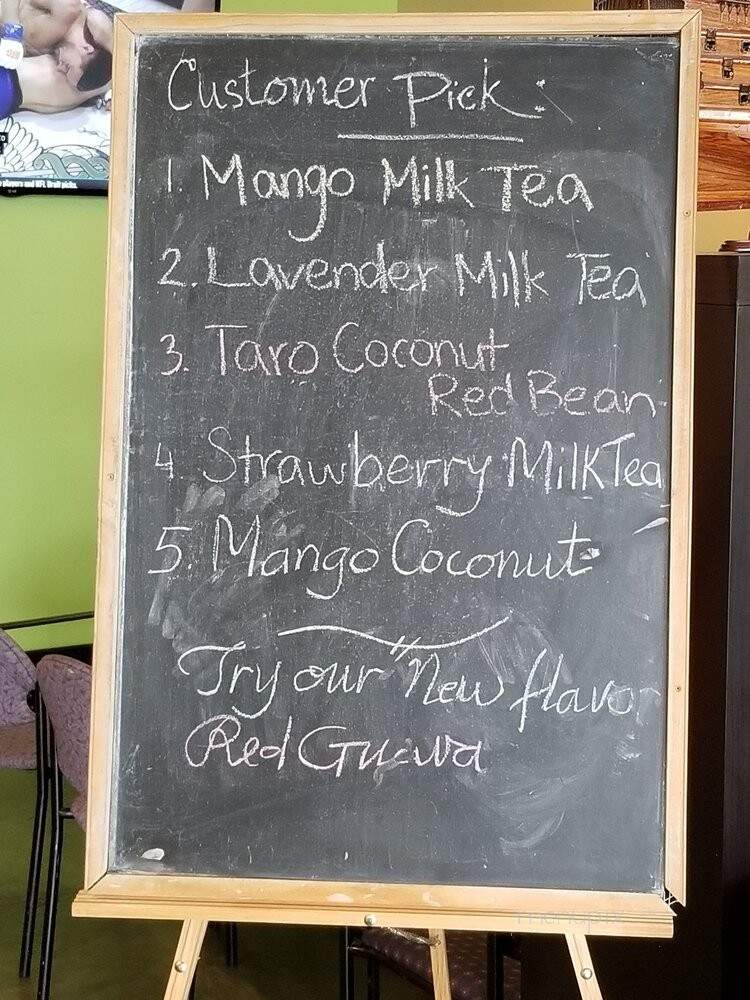 Customer Pick:
1. Mango Milk Tea
2. Lavender Milk Tea
3. Taro Coconut
Red Bean
4. Strawberry Milk Tea
5. Mango Coconut
Try our "New flavor
Red Guava